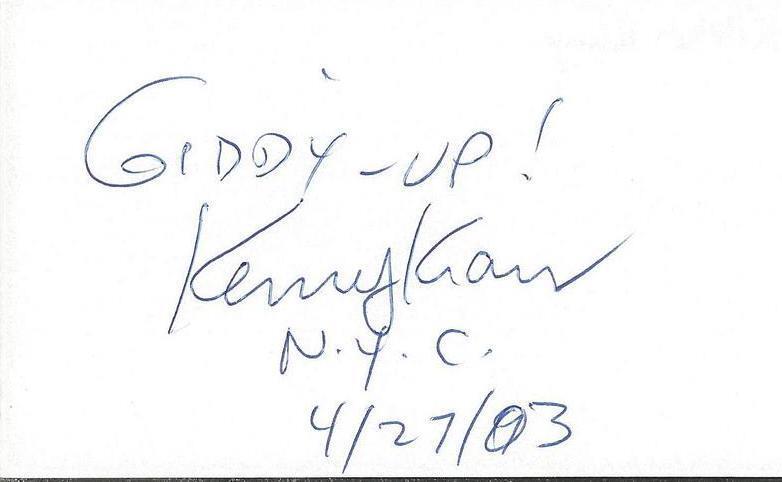 GIDDY-UP!
Kenny Kramer
N.Y.C.
4/27/03